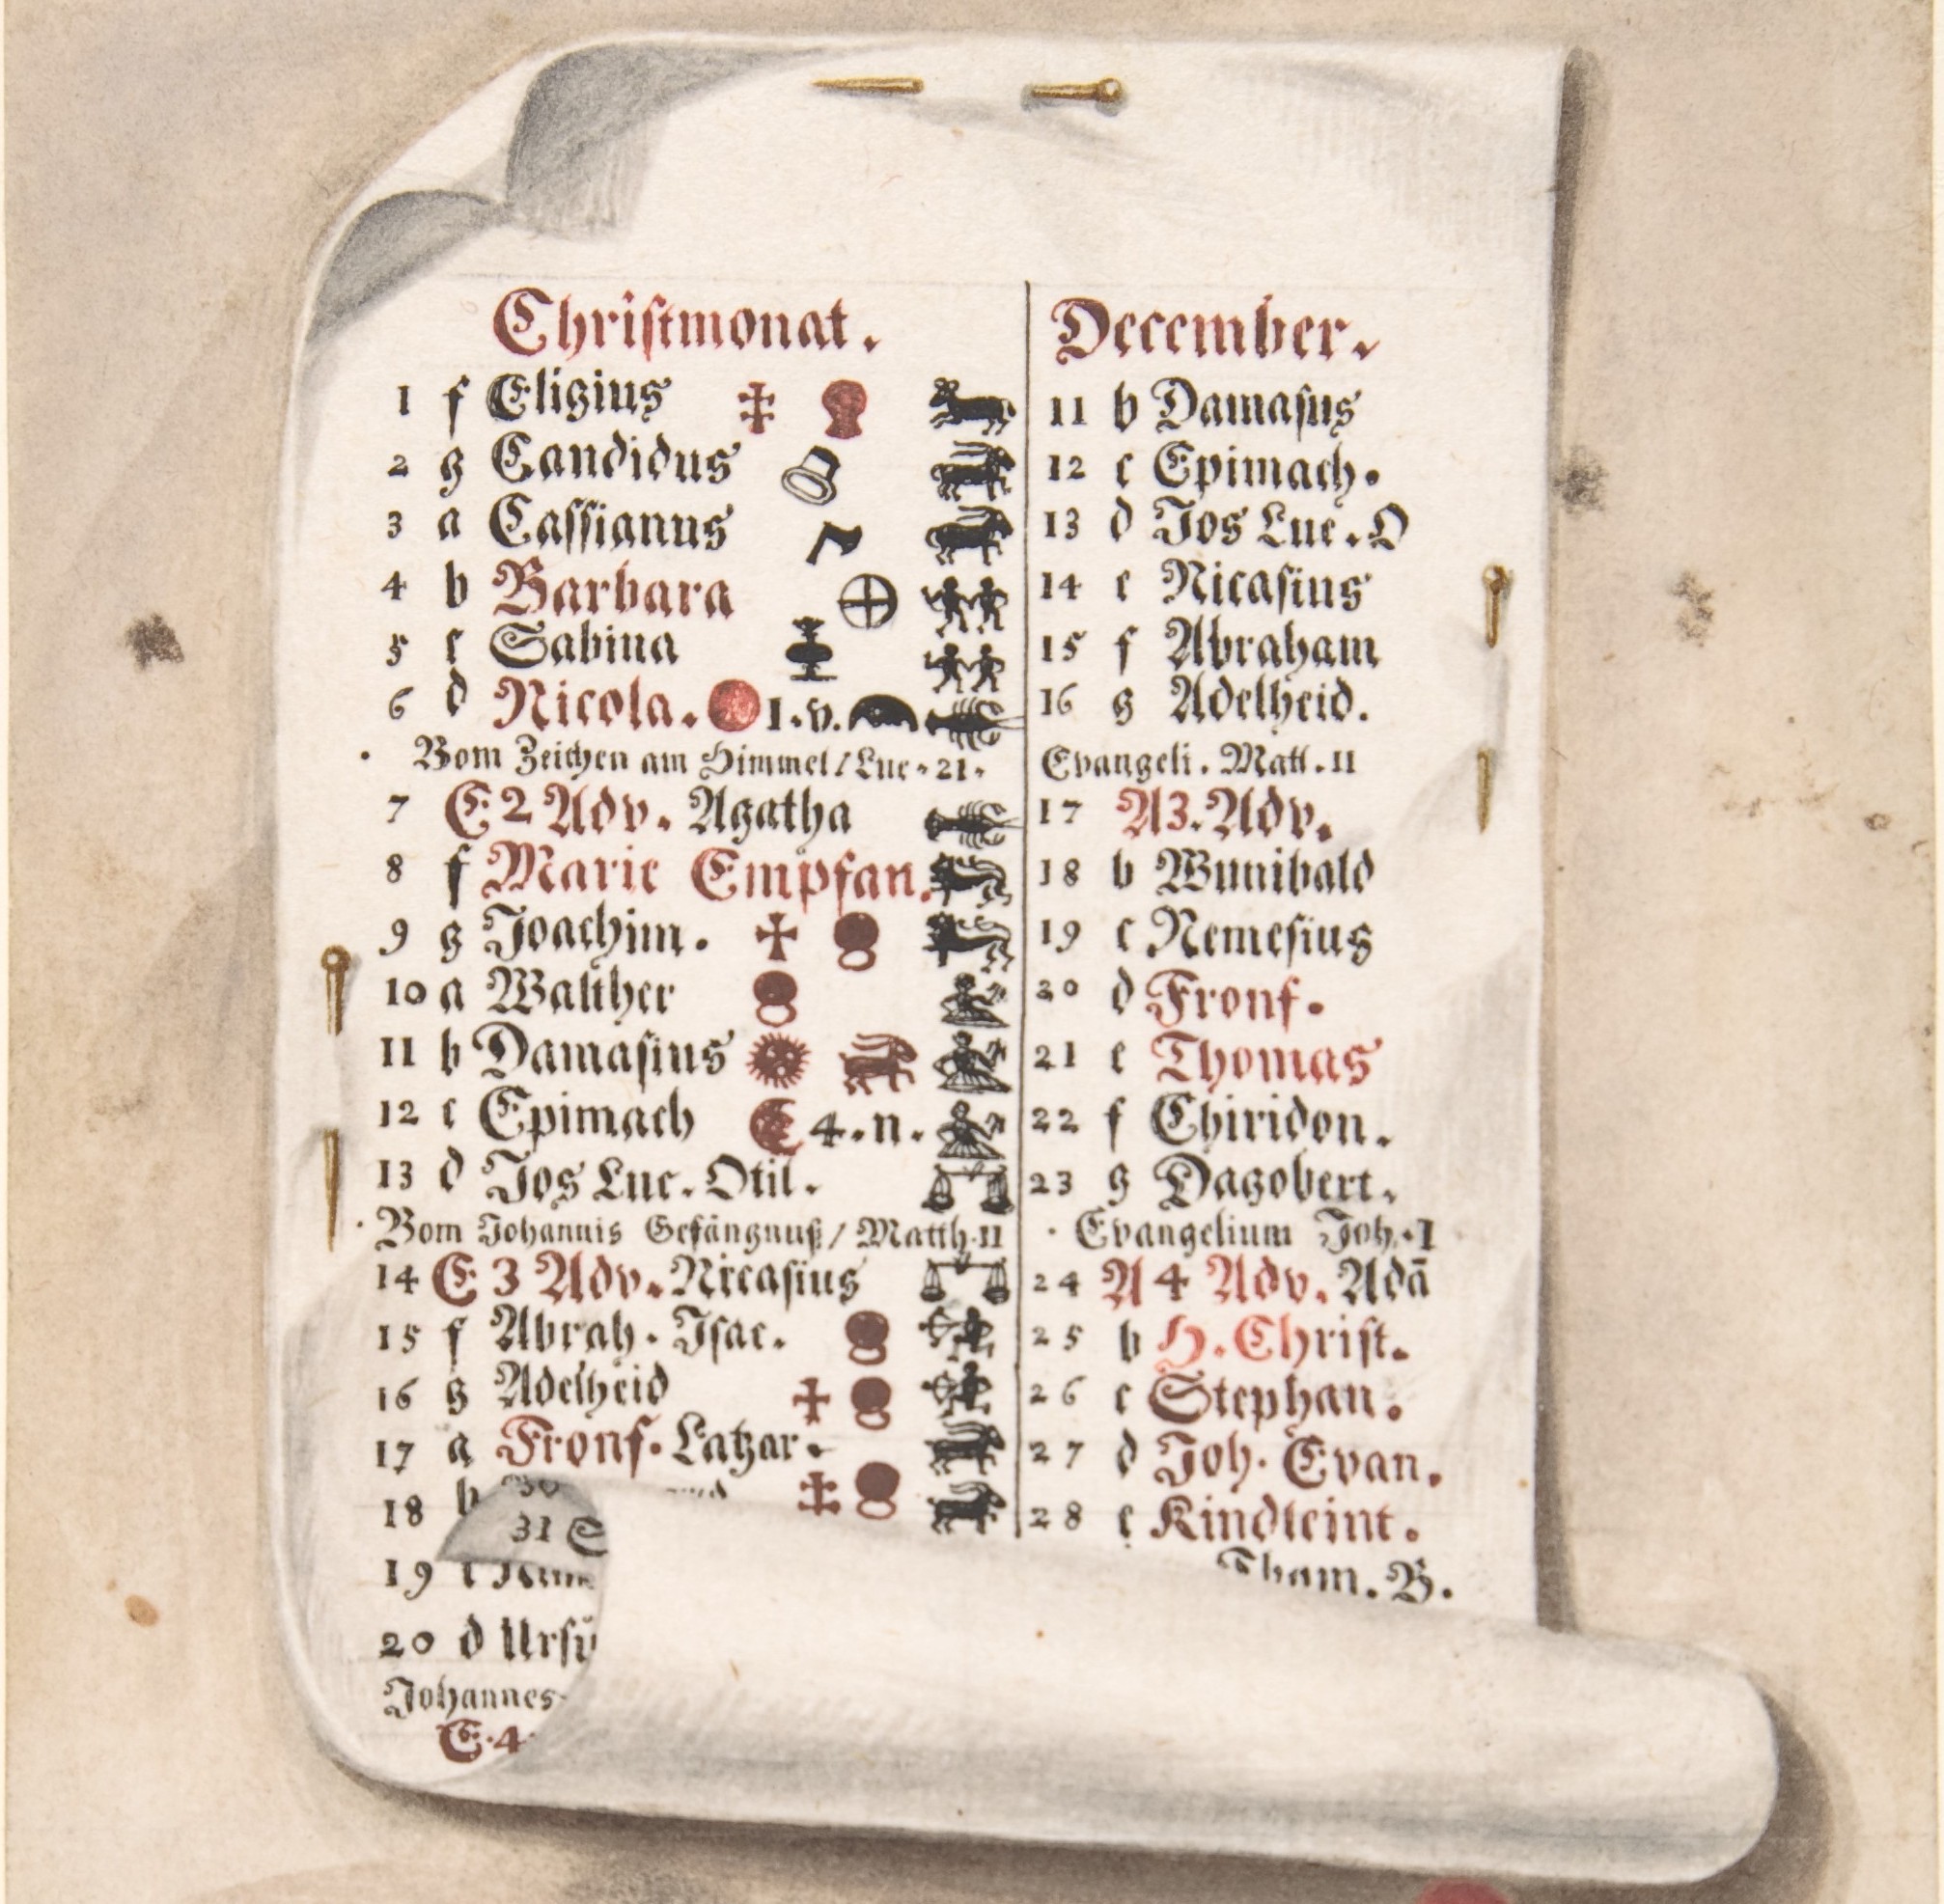 Christmonat.
1 f Eligius
2 g Candidus
3 a Cassianus
4 b Barbara
5 c Sabina
6 d Nicola. 1. v.
Vom Zeichen am Himmel / Luc. 21.
7 E 2 Adv. Agatha
8 f Marie Empfan.
9 g Joachim.
10 a Walther
11 b Damasius
12 c Epimach 4. n.
13 d Jos Luc. Otil.
Vom Johannis Gefängnuß / Matth. 11
14 E 3 Adv. Nicasius
15 f Abrah. Isac.
16 g Adelheid
17 a Fronf. Latzar.
18 b
31
19 c
20 d
Johannes
E. 4.
December.
11 b Damasus
12 c Epimach.
13 d Jos Luc. O
14 e Nicasius
15 f Abraham
16 g Adelheid.
Evangeli. Matt. 11
17 A 3. Adv.
18 b Wunibald
19 c Nemesius
20 d Fronf.
21 e Thomas
22 f Chiridon.
23 g Dagobert.
Evangelium Joh. 1
24 A 4 Adv. Adā
25 b H. Christ.
26 c Stephan.
27 d Joh. Evan.
28 e Kindleint.
Tham. B.